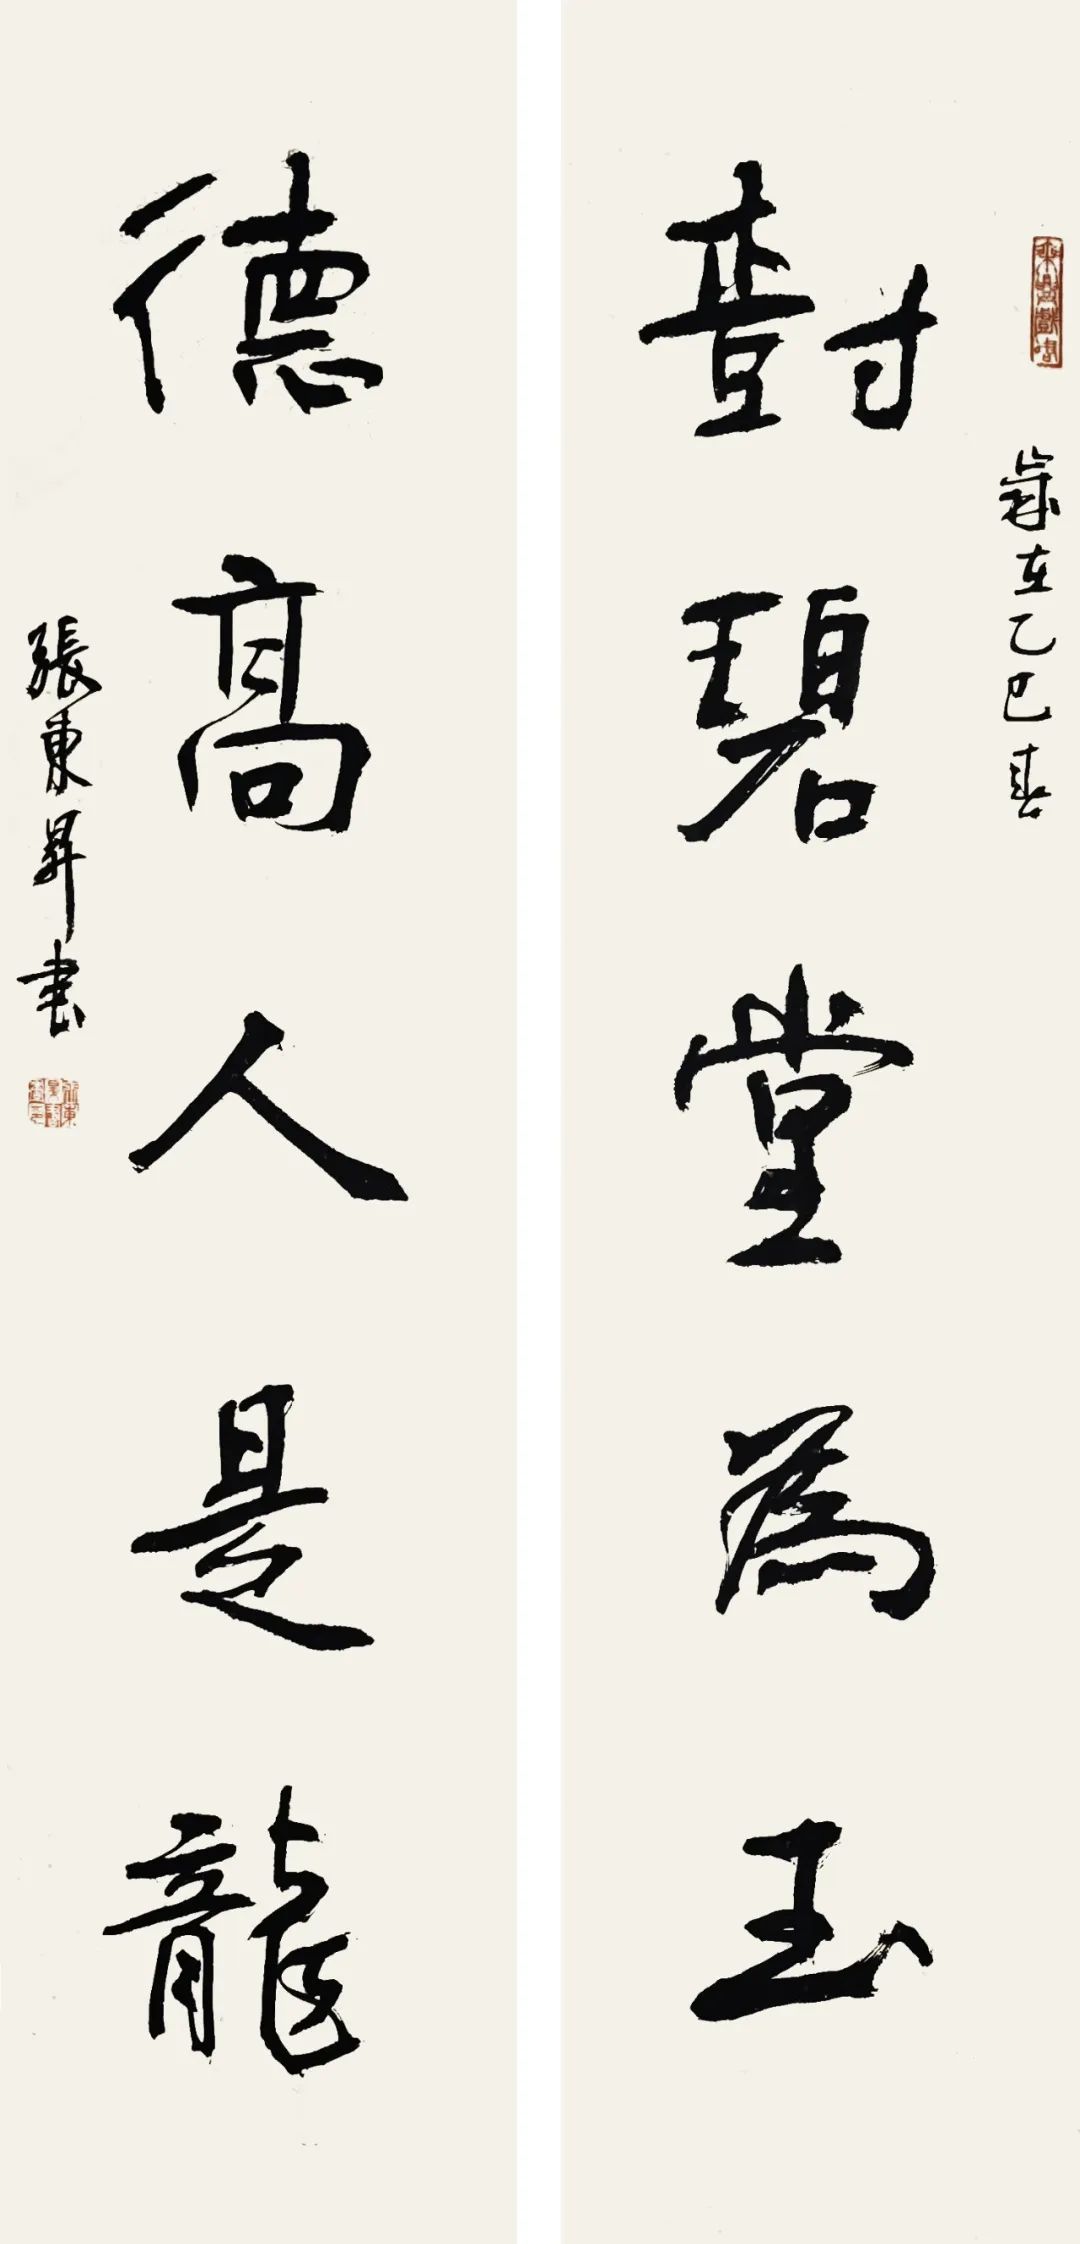 歲在乙巳春
對碧堂為玉
德高人是龍
張東昇書